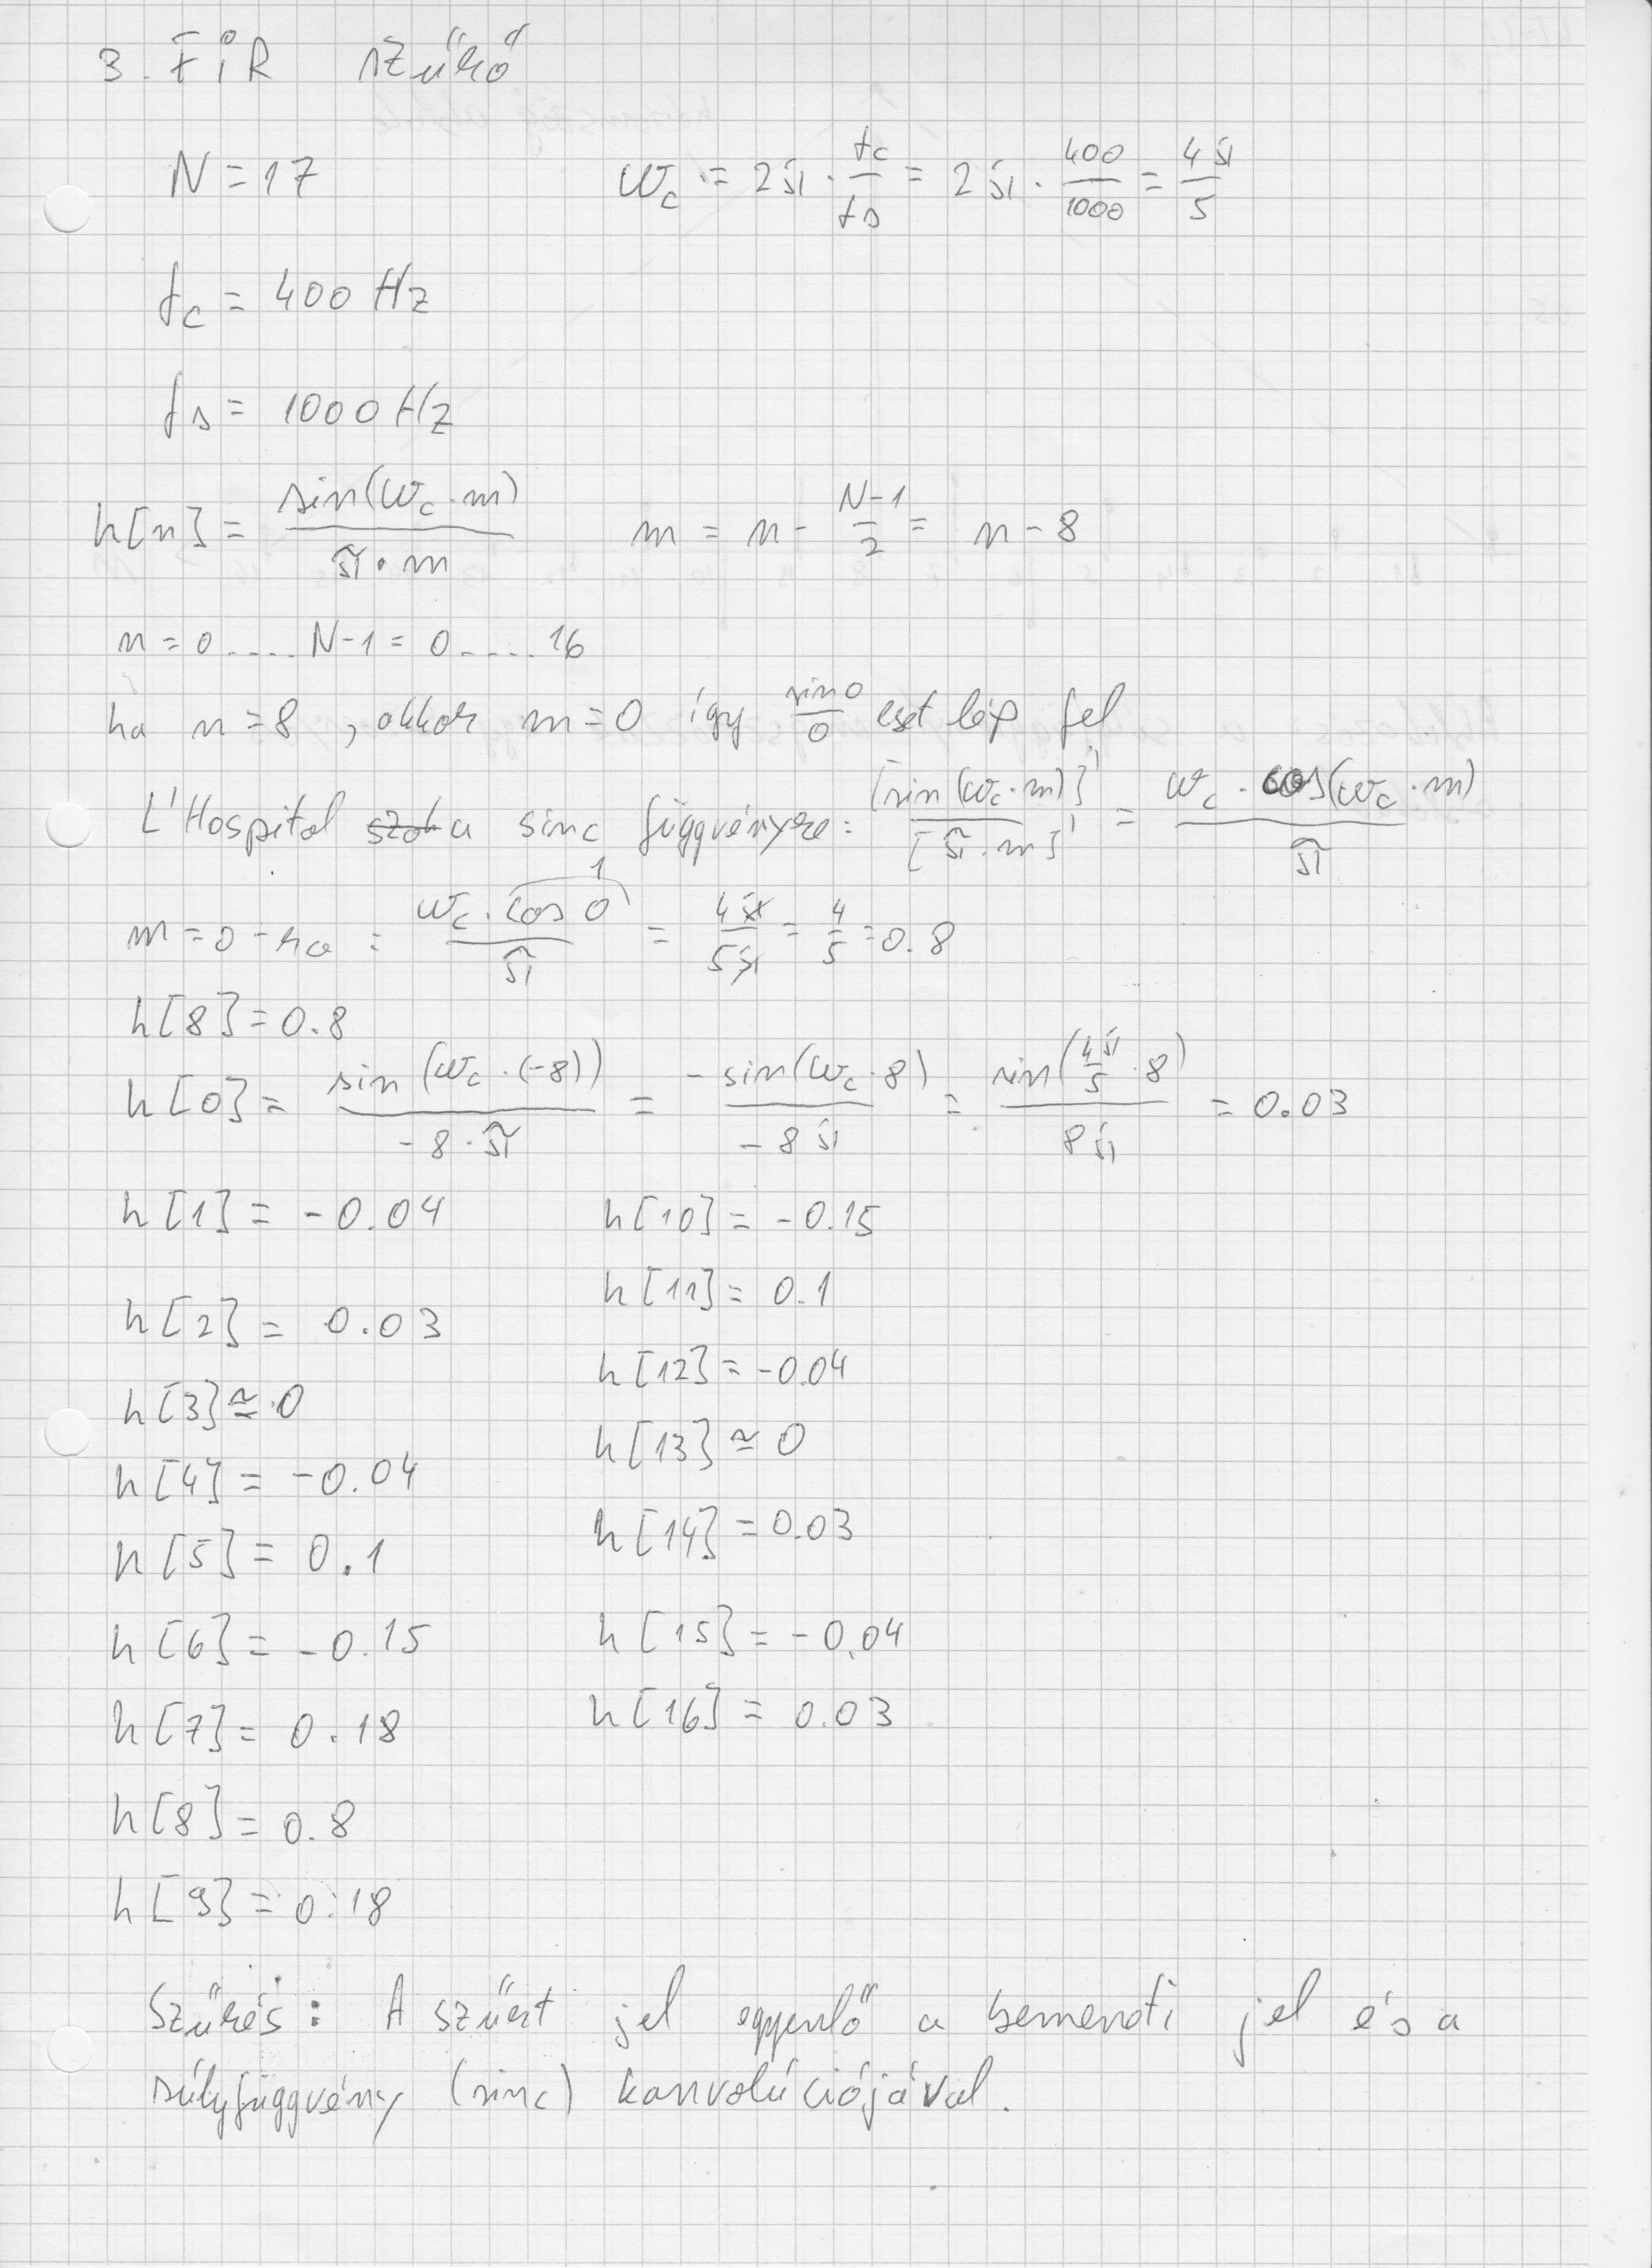 3. FIR szűrő
N = 17
ω_c = 2π · f_c/f_s = 2π · 400/1000 = 4π/5
f_c = 400 Hz
f_s = 1000 Hz
h[n] = sin(ω_c · m)/(π · m)    m = n - (N-1)/2 = n - 8
n = 0 .... N-1 = 0 .... 16
ha n = 8, akkor m = 0 így sin 0/0 eset lép fel
L'Hospital a sinc függvényre: [sin(ω_c · m)]'/[π · m]' = ω_c · cos(ω_c · m)/π
m = 0 - ra : ω_c · cos 0/π = 4π/5π = 4/5 = 0.8
1
h[8] = 0.8
h[0] = sin(ω_c · (-8))/(-8 · π) = - sin(ω_c · 8)/(- 8π) = sin(4π/5 · 8)/(8π) = 0.03
h[1] = - 0.04
h[2] = 0.03
h[3] ≅ 0
h[4] = - 0.04
h[5] = 0.1
h[6] = - 0.15
h[7] = 0.18
h[8] = 0.8
h[9] = 0.18
h[10] = - 0.15
h[11] = 0.1
h[12] = - 0.04
h[13] ≅ 0
h[14] = 0.03
h[15] = - 0.04
h[16] = 0.03
Szűrés: A szűrt jel egyenlő a bemeneti jel és a
súlyfüggvény (sinc) konvolúciójával.